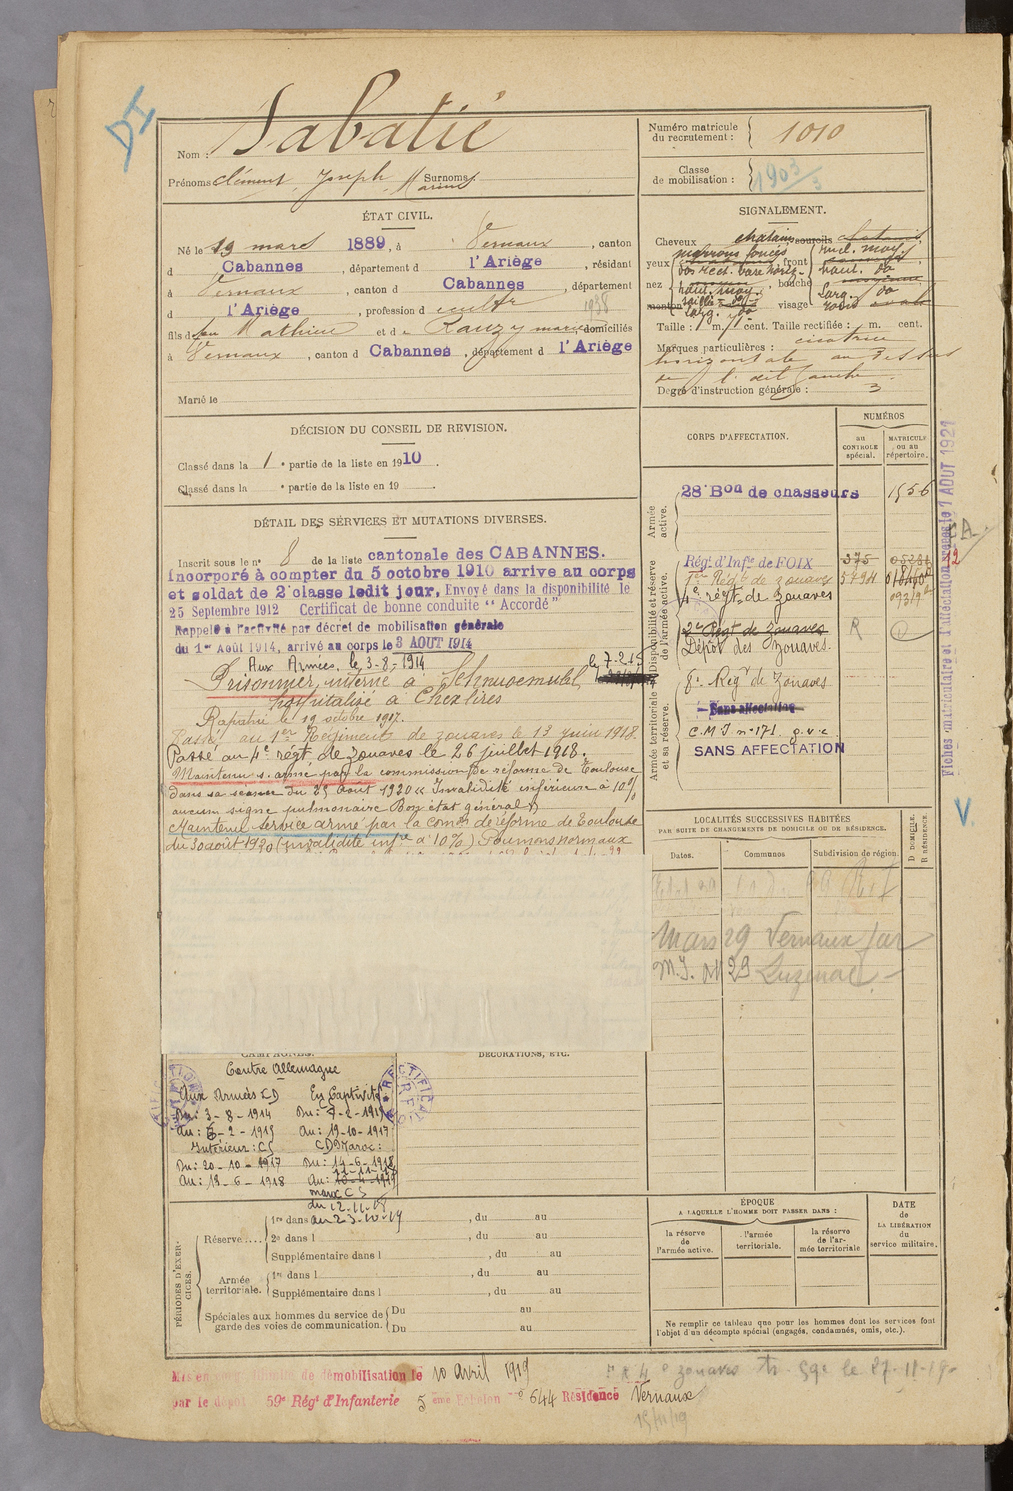 DI
Nom : Sabatié
Prénoms Clément, Joseph, Marius Surnoms
Numéro matricule du recrutement : 1010
Classe de mobilisation : 1903/3
ÉTAT CIVIL.
Né le 19 mars 1889, à Vernaux, canton
d Cabannes, département d l'Ariège, résidant
à Vernaux, canton d Cabannes, département
d l'Ariège, profession d cultr
1938
fils de feu Mathieu et d e Rauzy marie domiciliés
à Vernaux, canton d Cabannes, département d l'Ariège
Marié le
SIGNALEMENT.
Cheveux chatains sourcils
yeux marrons foncés, front incl. moy.
dos rect. base horiz. haut. do
nez haut. moy., bouche larg. do
saillie do
menton larg. do visage
Taille : 1 m. cent. Taille rectifiée : m. cent.
Marques particulières : cicatrice
horizontale au dessus
de l'œil gauche
Degré d'instruction générale : 3
DÉCISION DU CONSEIL DE REVISION.
Classé dans la 1e partie de la liste en 1910.
Classé dans la e partie de la liste en 19 .
DÉTAIL DES SERVICES ET MUTATIONS DIVERSES.
Inscrit sous le n° 8 de la liste cantonale des CABANNES.
Incorporé à compter du 5 octobre 1910 arrivé au corps
et soldat de 2e classe ledit jour, Envoyé dans la disponibilité le
25 Septembre 1912 Certificat de bonne conduite "Accordé"
Rappelé à l'activité par décret de mobilisation générale
du 1er Août 1914, arrivé au corps le 3 AOUT 1914
Aux Armées, le 3-8-1914
Prisonnier le 7-2-15
interné à
hospitalisé à Chexbres
Rapatrié le 19 octobre 1917.
Passé au 1er Régiment de zouaves le 13 juin 1918
Passé au 4e régt de zouaves le 26 juillet 1918.
Maintenu s. armé par la commission de réforme de Toulouse
dans sa séance du 25 Août 1920 « Invalidité inférieure à 10%
aucun signe pulmonaire Bon état général »
Maintenu service armé par la comon de réforme de Toulouse
du 30 août 1920 (invalidité infre à 10%) Poumons normaux
CORPS D'AFFECTATION.
NUMÉROS
au CONTROLE spécial.
MATRICULE ou au répertoire.
Armée active.
28e Bon de chasseurs 1556
Disponibilité et réserve de l'armée active.
Régt d'Infie de FOIX 375
1er Régt de zouaves 5794
4e régt de Zouaves
2e Régt de zouaves R
Dépôt des Zouaves.
Armée territoriale et sa réserve.
8e Régt de Zouaves
Sans affectation
C.M.I n° 171 g.v.c
SANS AFFECTATION
Fiches matriculaire et d'affectation 1 AOUT 1921
V
LOCALITÉS SUCCESSIVES HABITÉES
PAR SUITE DE CHANGEMENTS DE DOMICILE OU DE RÉSIDENCE.
Dates.
Communes
Subdivision de région.
D DOMICILE.
R RÉSIDENCE.
Mars 29 Vernaux par
29 Luzenac
CAMPAGNES.
DÉCORATIONS, ETC.
Contre Allemagne
Aux Armées CD
Du : 3-8-1914
Au : 6-2-1915
Intérieur : CS
Du : 20-10-1917
Au : 13-6-1918
En Captivité
Du : 7-2-1915
Au : 19-10-1917
CD Maroc :
Du : 14-6-1918
Au : 11-11-18
maroc CS
du 12.11.18
au 23-10-19
RECTIFICAT
PÉRIODES D'EXERCICES.
Réserve....
1re dans l , du au
2e dans l , du au
Supplémentaire dans l , du au
Armée territoriale.
1re dans l , du au
Supplémentaire dans l , du au
Spéciales aux hommes du service de garde des voies de communication.
Du au
Du au
ÉPOQUE
A LAQUELLE L'HOMME DOIT PASSER DANS :
la réserve de l'armée active.
l'armée territoriale.
la réserve de l'armée territoriale
DATE de LA LIBÉRATION du service militaire.
Ne remplir ce tableau que pour les hommes dont les services font
l'objet d'un décompte spécial (engagés, condamnés, omis, etc.).
Mis en congé illimité de démobilisation le 10 avril 1919
par le dépôt 59e Régt d'Infanterie 5 ème Echelon n° 644 Résidence Vernaux
4e zouaves tr. 59e le 27-11-19
15/11/19